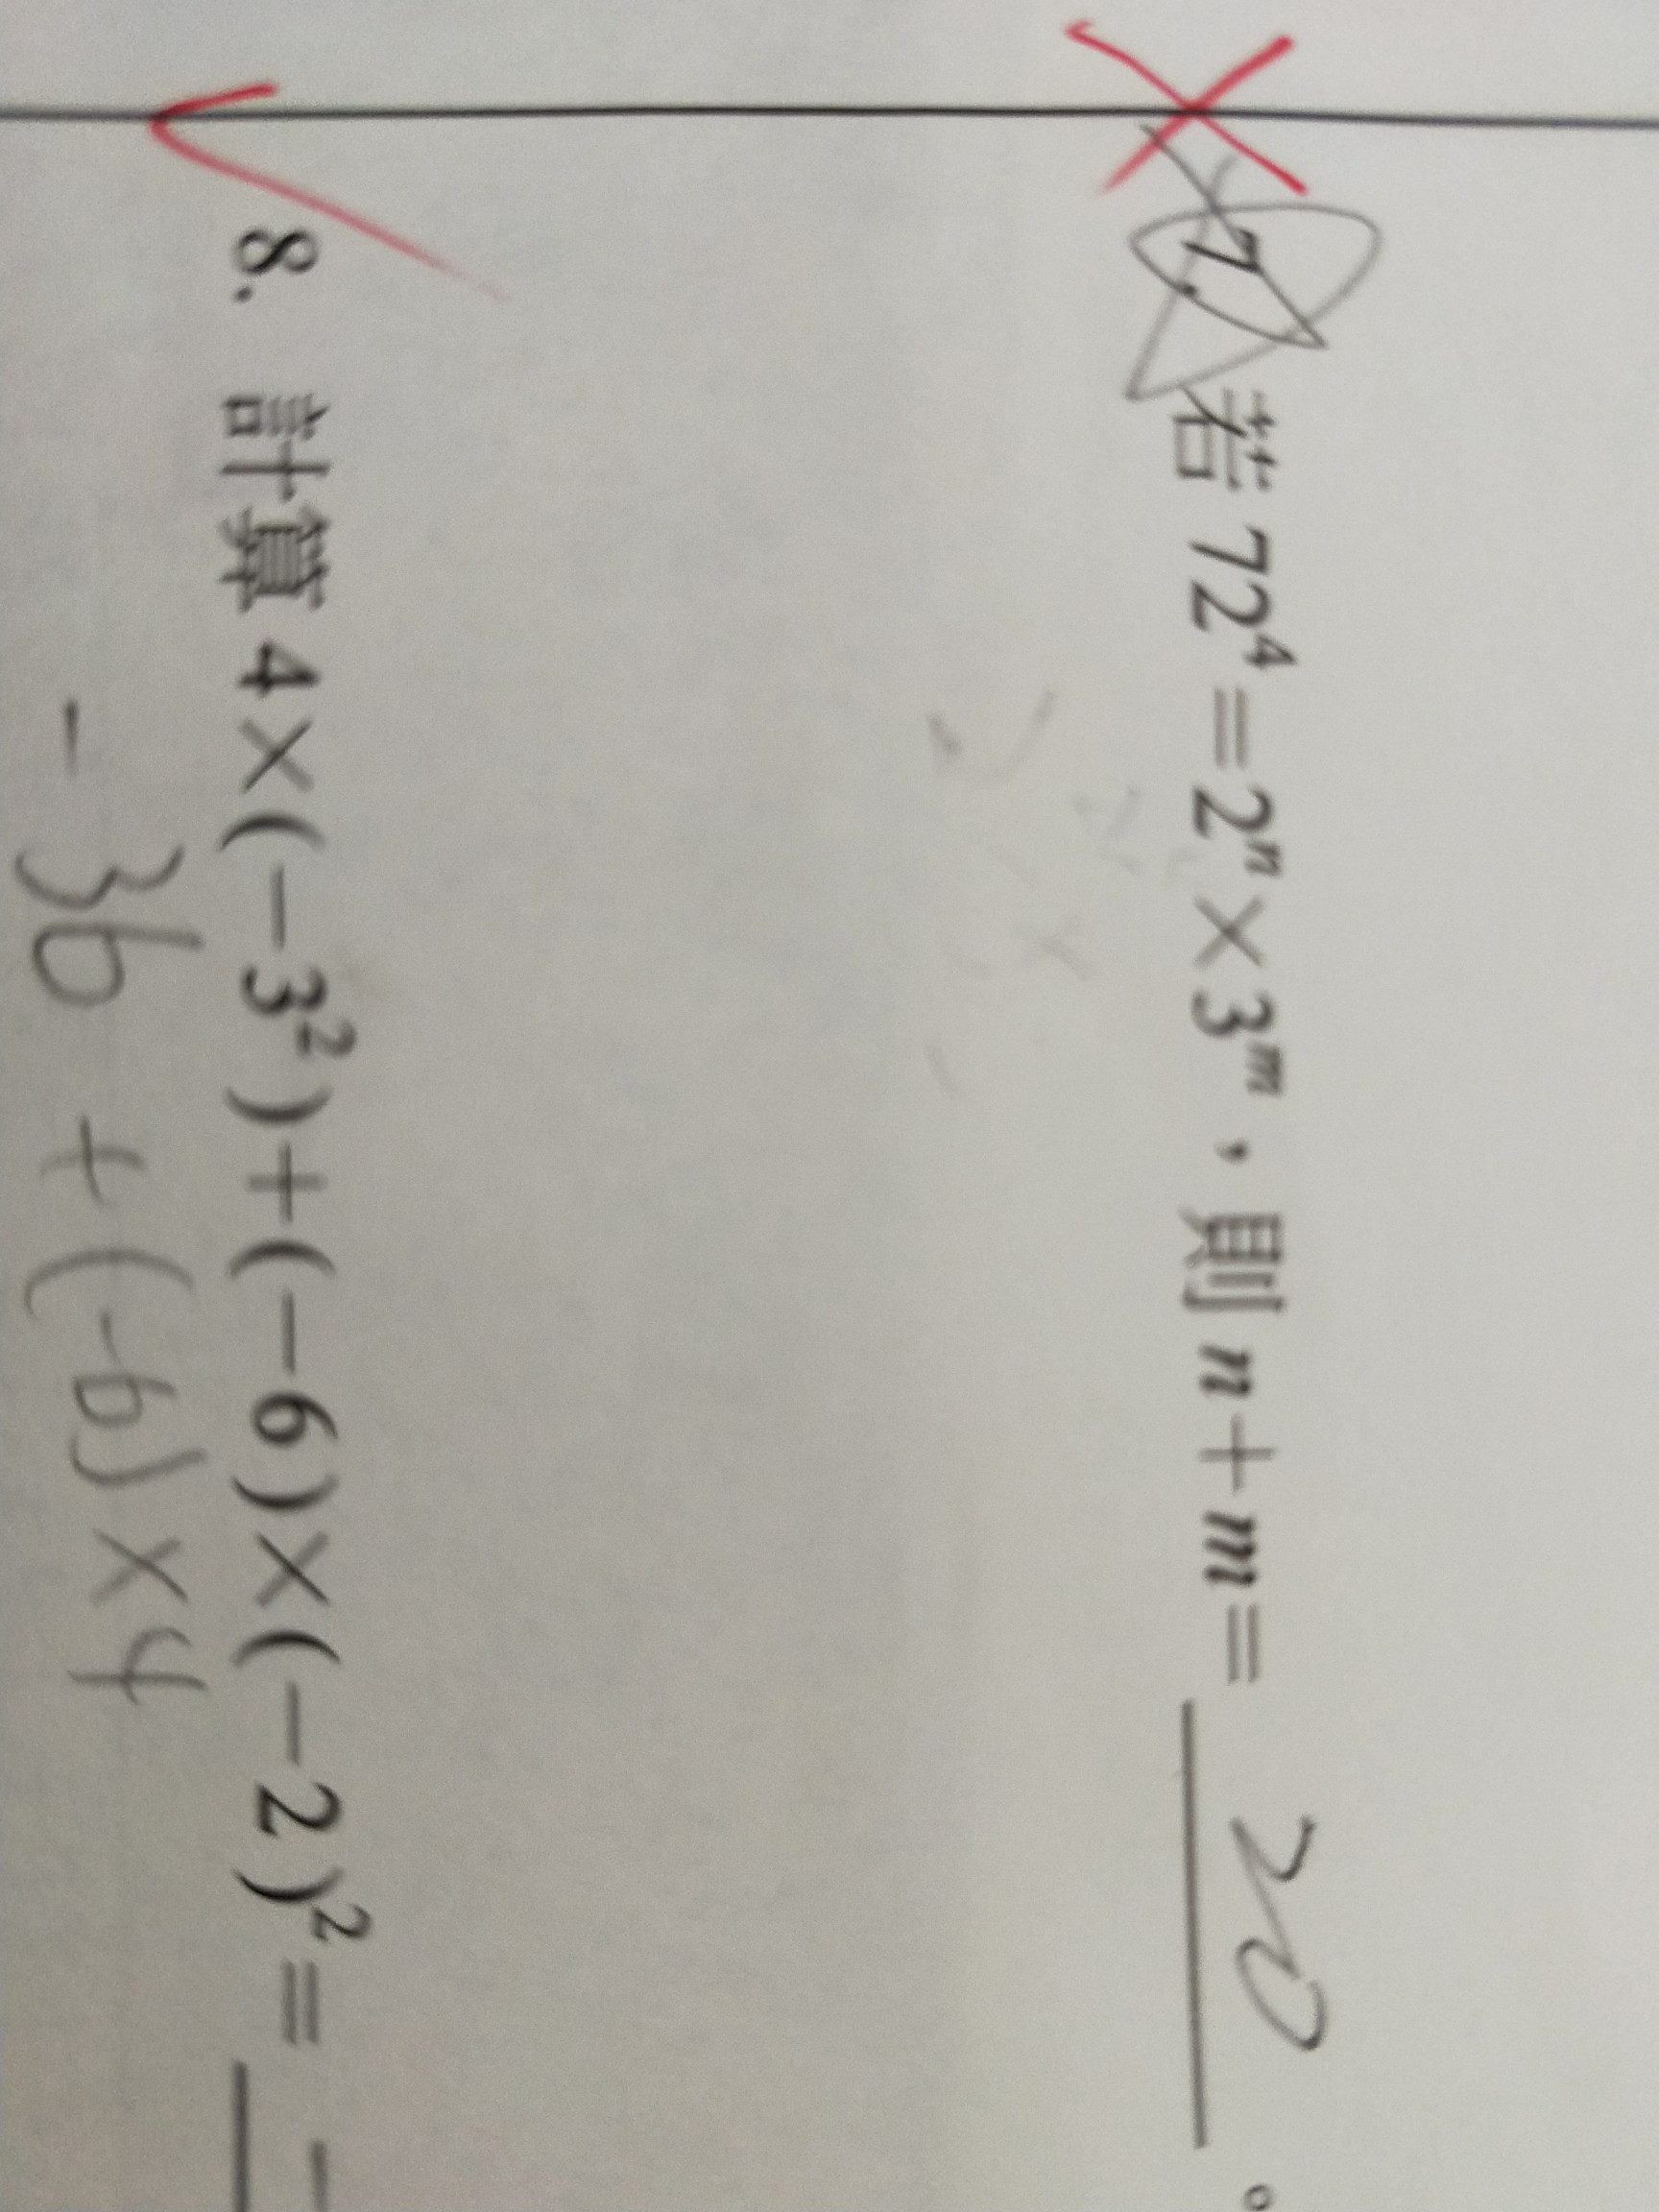 7. 若 72⁴=2ⁿ×3ᵐ,則 n+m= 20 。
8. 計算 4×(-3²)+(-6)×(-2)²= -
-36 + (-6)×4